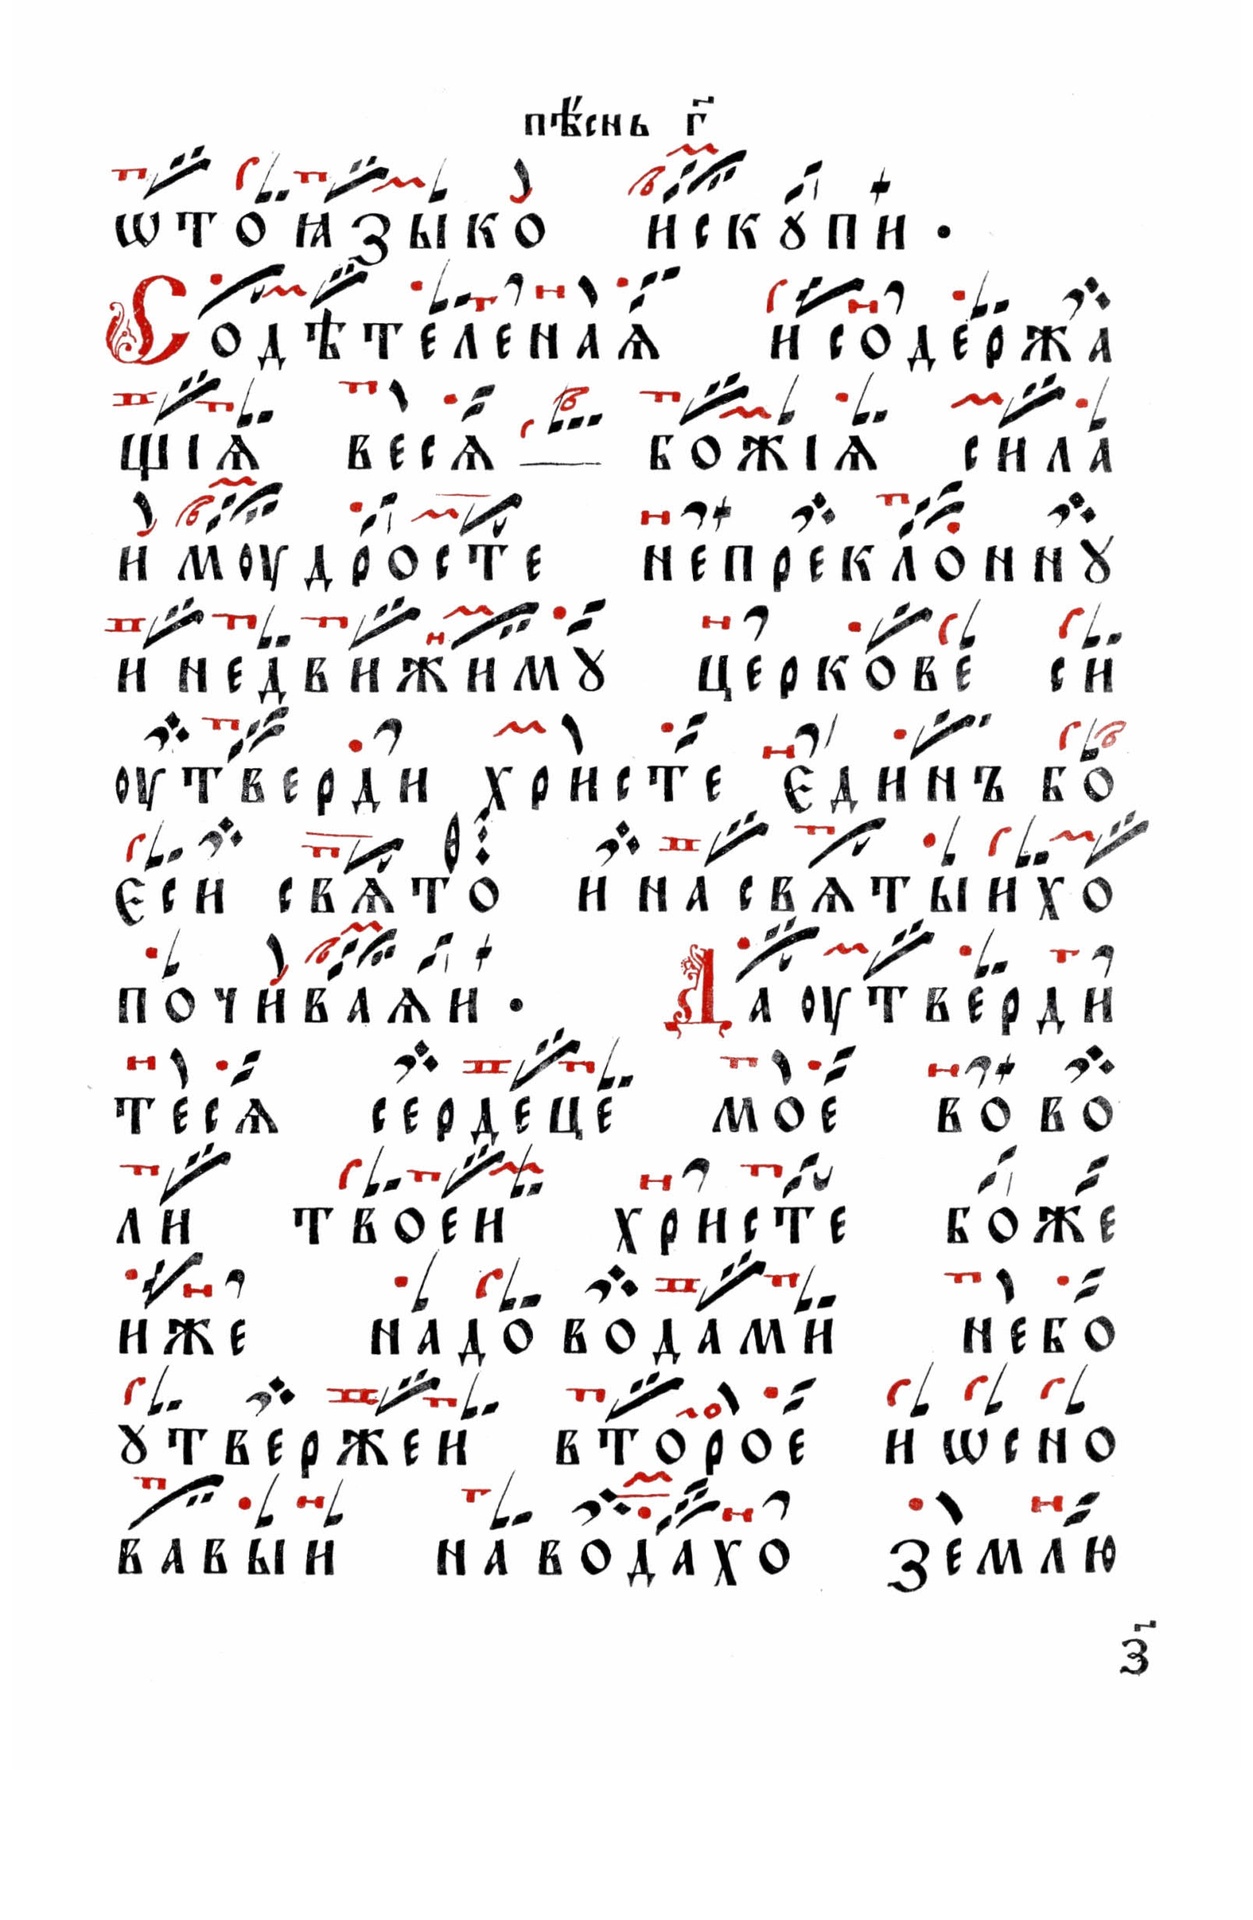 пѣснь г҃
ѡто ꙗзыко искꙋпи ·
Содѣтеленая исодержа
щїѧ весѧ божїѧ сила
и моудросте непреклоннꙋ
и недвижимꙋ церкове си
оутверди христе единъ бо
еси свѧто и насвѧтыихо
почиваѧи · Да оутверди
тесѧ сердеце мое во во
ли твоеи христе боже
иже надоводами небо
ꙋтвержеи второе и ѡсно
вавыи наводахо землю
з҃